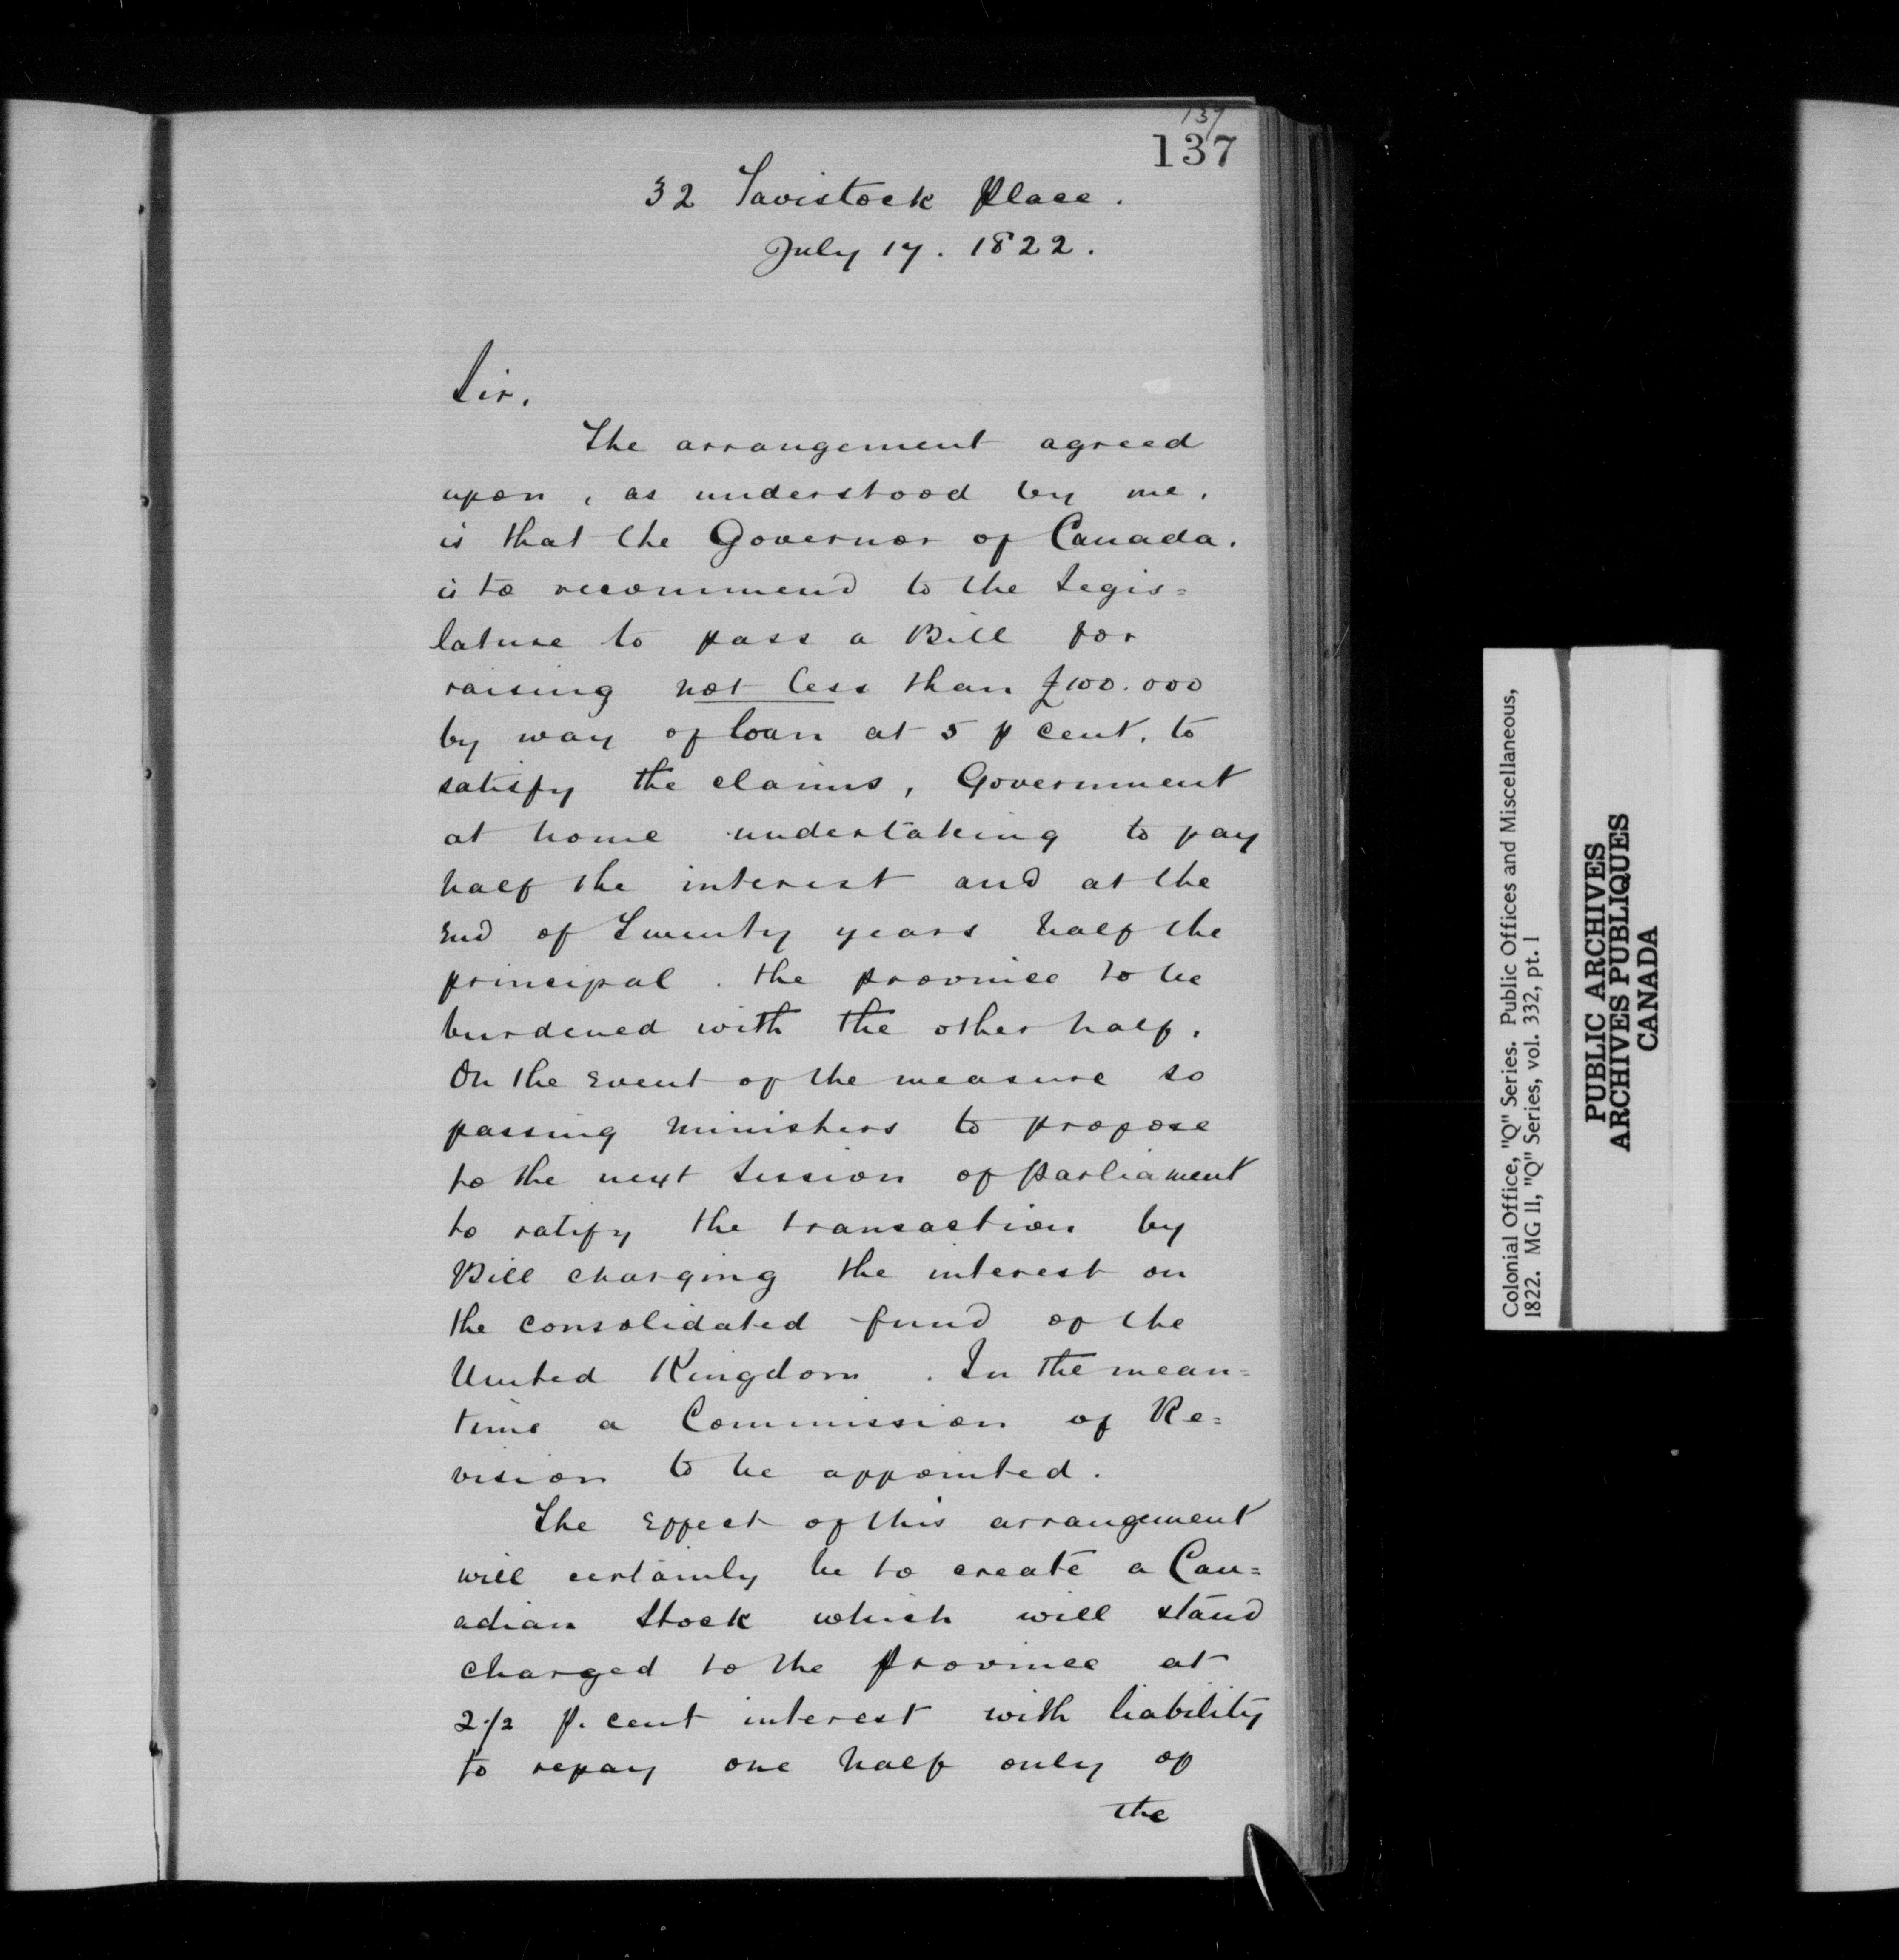 137
137
32 Tavistock Place.
July 17. 1822.
Sir,
The arrangement agreed
upon, as understood by me,
is that the Governor of Canada,
is to recommend to the Legis=
lature to pass a Bill for
raising not less than £100.000
by way of loan at 5 p cent, to
satisfy the claims, Government
at home undertaking to pay
half the interest and at the
End of Twenty years half the
principal. the province to be
burdened with the other half.
On the Event of the measure so
passing Ministers to propose
to the next Session of Parliament
to ratify the transaction by
Bill charging the interest on
the consolidated fund of the
United Kingdom. In the mean=
time a Commission of Re=
vision to be appointed.
The Effect of this arrangement
will certainly be to create a Can=
adian Stock which will stand
charged to the Province at
2 1/2 p. cent interest with liability
to repay one half only of
the
Colonial Office, "Q" Series. Public Offices and Miscellaneous,
1822. MG 11, "Q" Series, vol. 332, pt. 1
PUBLIC ARCHIVES
ARCHIVES PUBLIQUES
CANADA